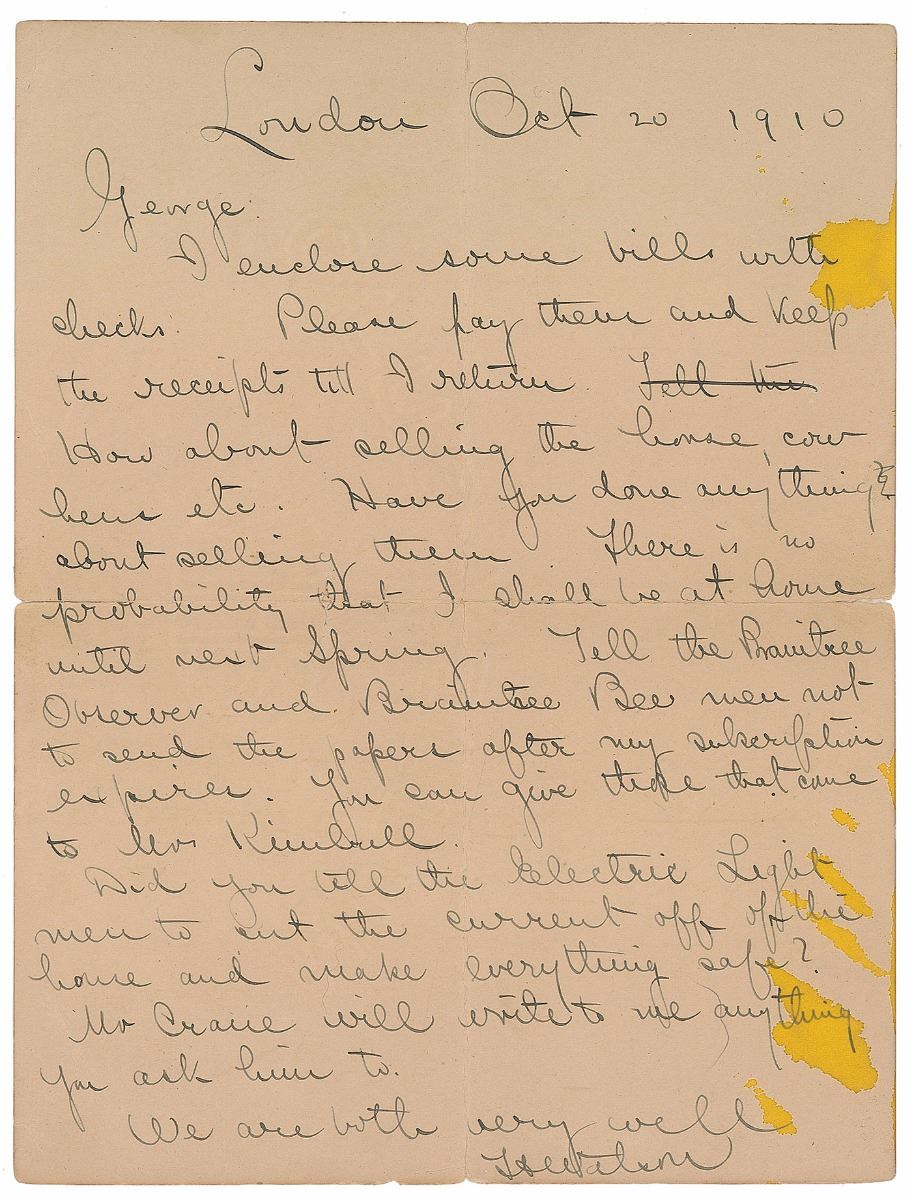 London Oct 20 1910
George.
I enclose some bills with
checks. Please pay them and keep
the receipts till I return. Tell the
How about selling the horse, cow
hens etc. Have you done anything
about selling them There is no
probability that I shall be at home
until next Spring. Tell the Braintree
Observer and Braintree Bee men not
to send the papers after my subscription
expires. You can give those that come
to Mrs Kimball.
Did you tell the Electric Light
men to cut the current off of the
house and make everything safe?
Mr Crane will write to me anything
you ask him to.
We are both very well